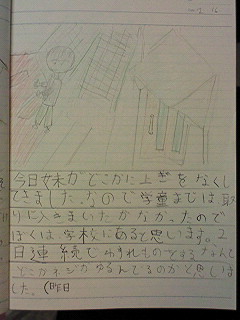 今日妹がどこかに上ぎをなくし
てきました。なので学童までは取
りに入きまいたがなかったので
ぼくは学校にあると思います。2
日連続でわすれものをするなんて
どこかネジがゆるんでるのかと思いま
した。(昨日